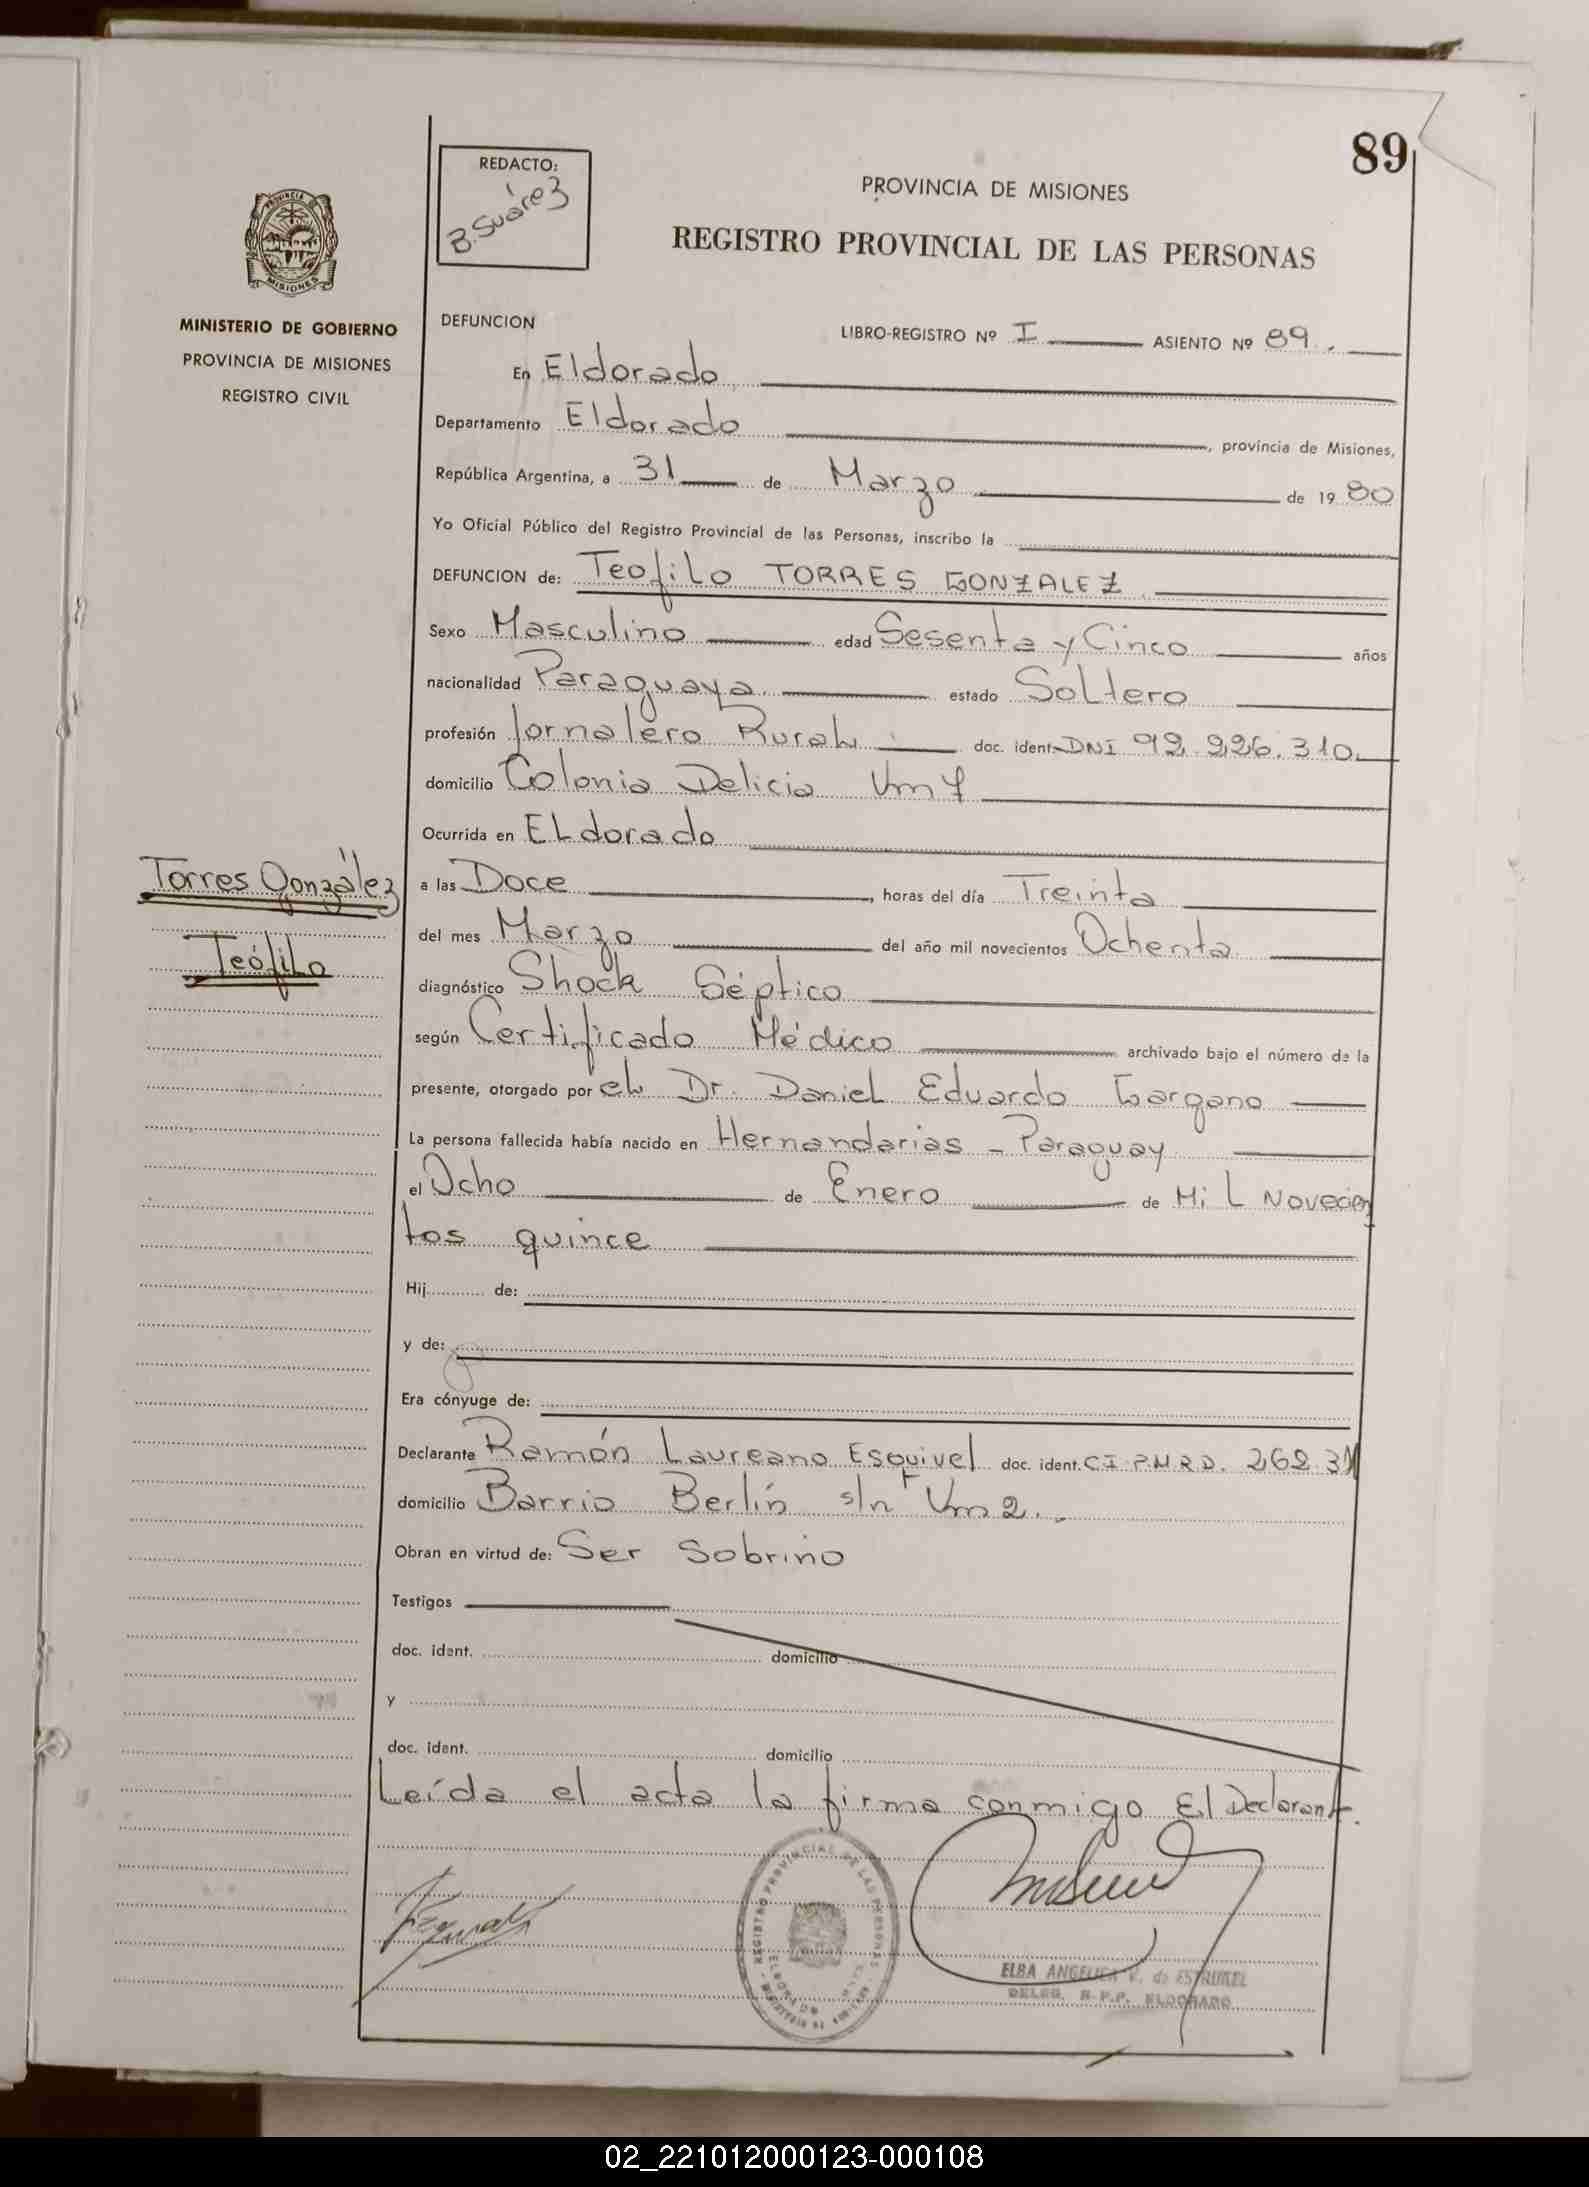 89
REDACTO:
B. Suárez
PROVINCIA DE MISIONES
REGISTRO PROVINCIAL DE LAS PERSONAS
PROVINCIA DE
MISIONES
MINISTERIO DE GOBIERNO
PROVINCIA DE MISIONES
REGISTRO CIVIL
DEFUNCION
LIBRO-REGISTRO Nº I ASIENTO Nº 89.
En Eldorado
Departamento Eldorado, provincia de Misiones,
República Argentina, a 31 de Marzo de 1980
Yo Oficial Público del Registro Provincial de las Personas, inscribo la
DEFUNCION de: Teofilo TORRES GONZALEZ
Sexo Masculino edad Sesenta y Cinco años
nacionalidad Paraguaya estado Soltero
profesión Jornalero Rural doc. ident. DNI 92.226.310
domicilio Colonia Delicia Km 7
Ocurrida en Eldorado
Torres González
Teófilo
a las Doce, horas del día Treinta
del mes Marzo del año mil novecientos Ochenta
diagnóstico Shock Séptico
según Certificado Médico archivado bajo el número de la
presente, otorgado por el Dr. Daniel Eduardo Gargano
La persona fallecida había nacido en Hernandarias - Paraguay
el Ocho de Enero de Mil Novecien
tos quince
Hij de:
y de:
Era cónyuge de:
Declarante Ramón Laureano Esquivel doc. ident. C I P.M.R.D. 262.3
domicilio Barrio Berlín s/n Km 2.
Obran en virtud de: Ser Sobrino
Testigos
doc. ident. domicilio
y
doc. ident. domicilio
Leída el acta la firma conmigo El Declarante.
REGISTRO PROVINCIAL DE LAS PERSONAS
ELDORADO
ELBA ANGELICA V. de
DELEG. R.P.P. ELDORADO
02_221012000123-000108